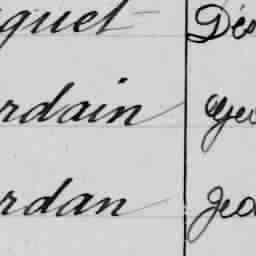 quet Dés
rdain Geo
rdan Jea